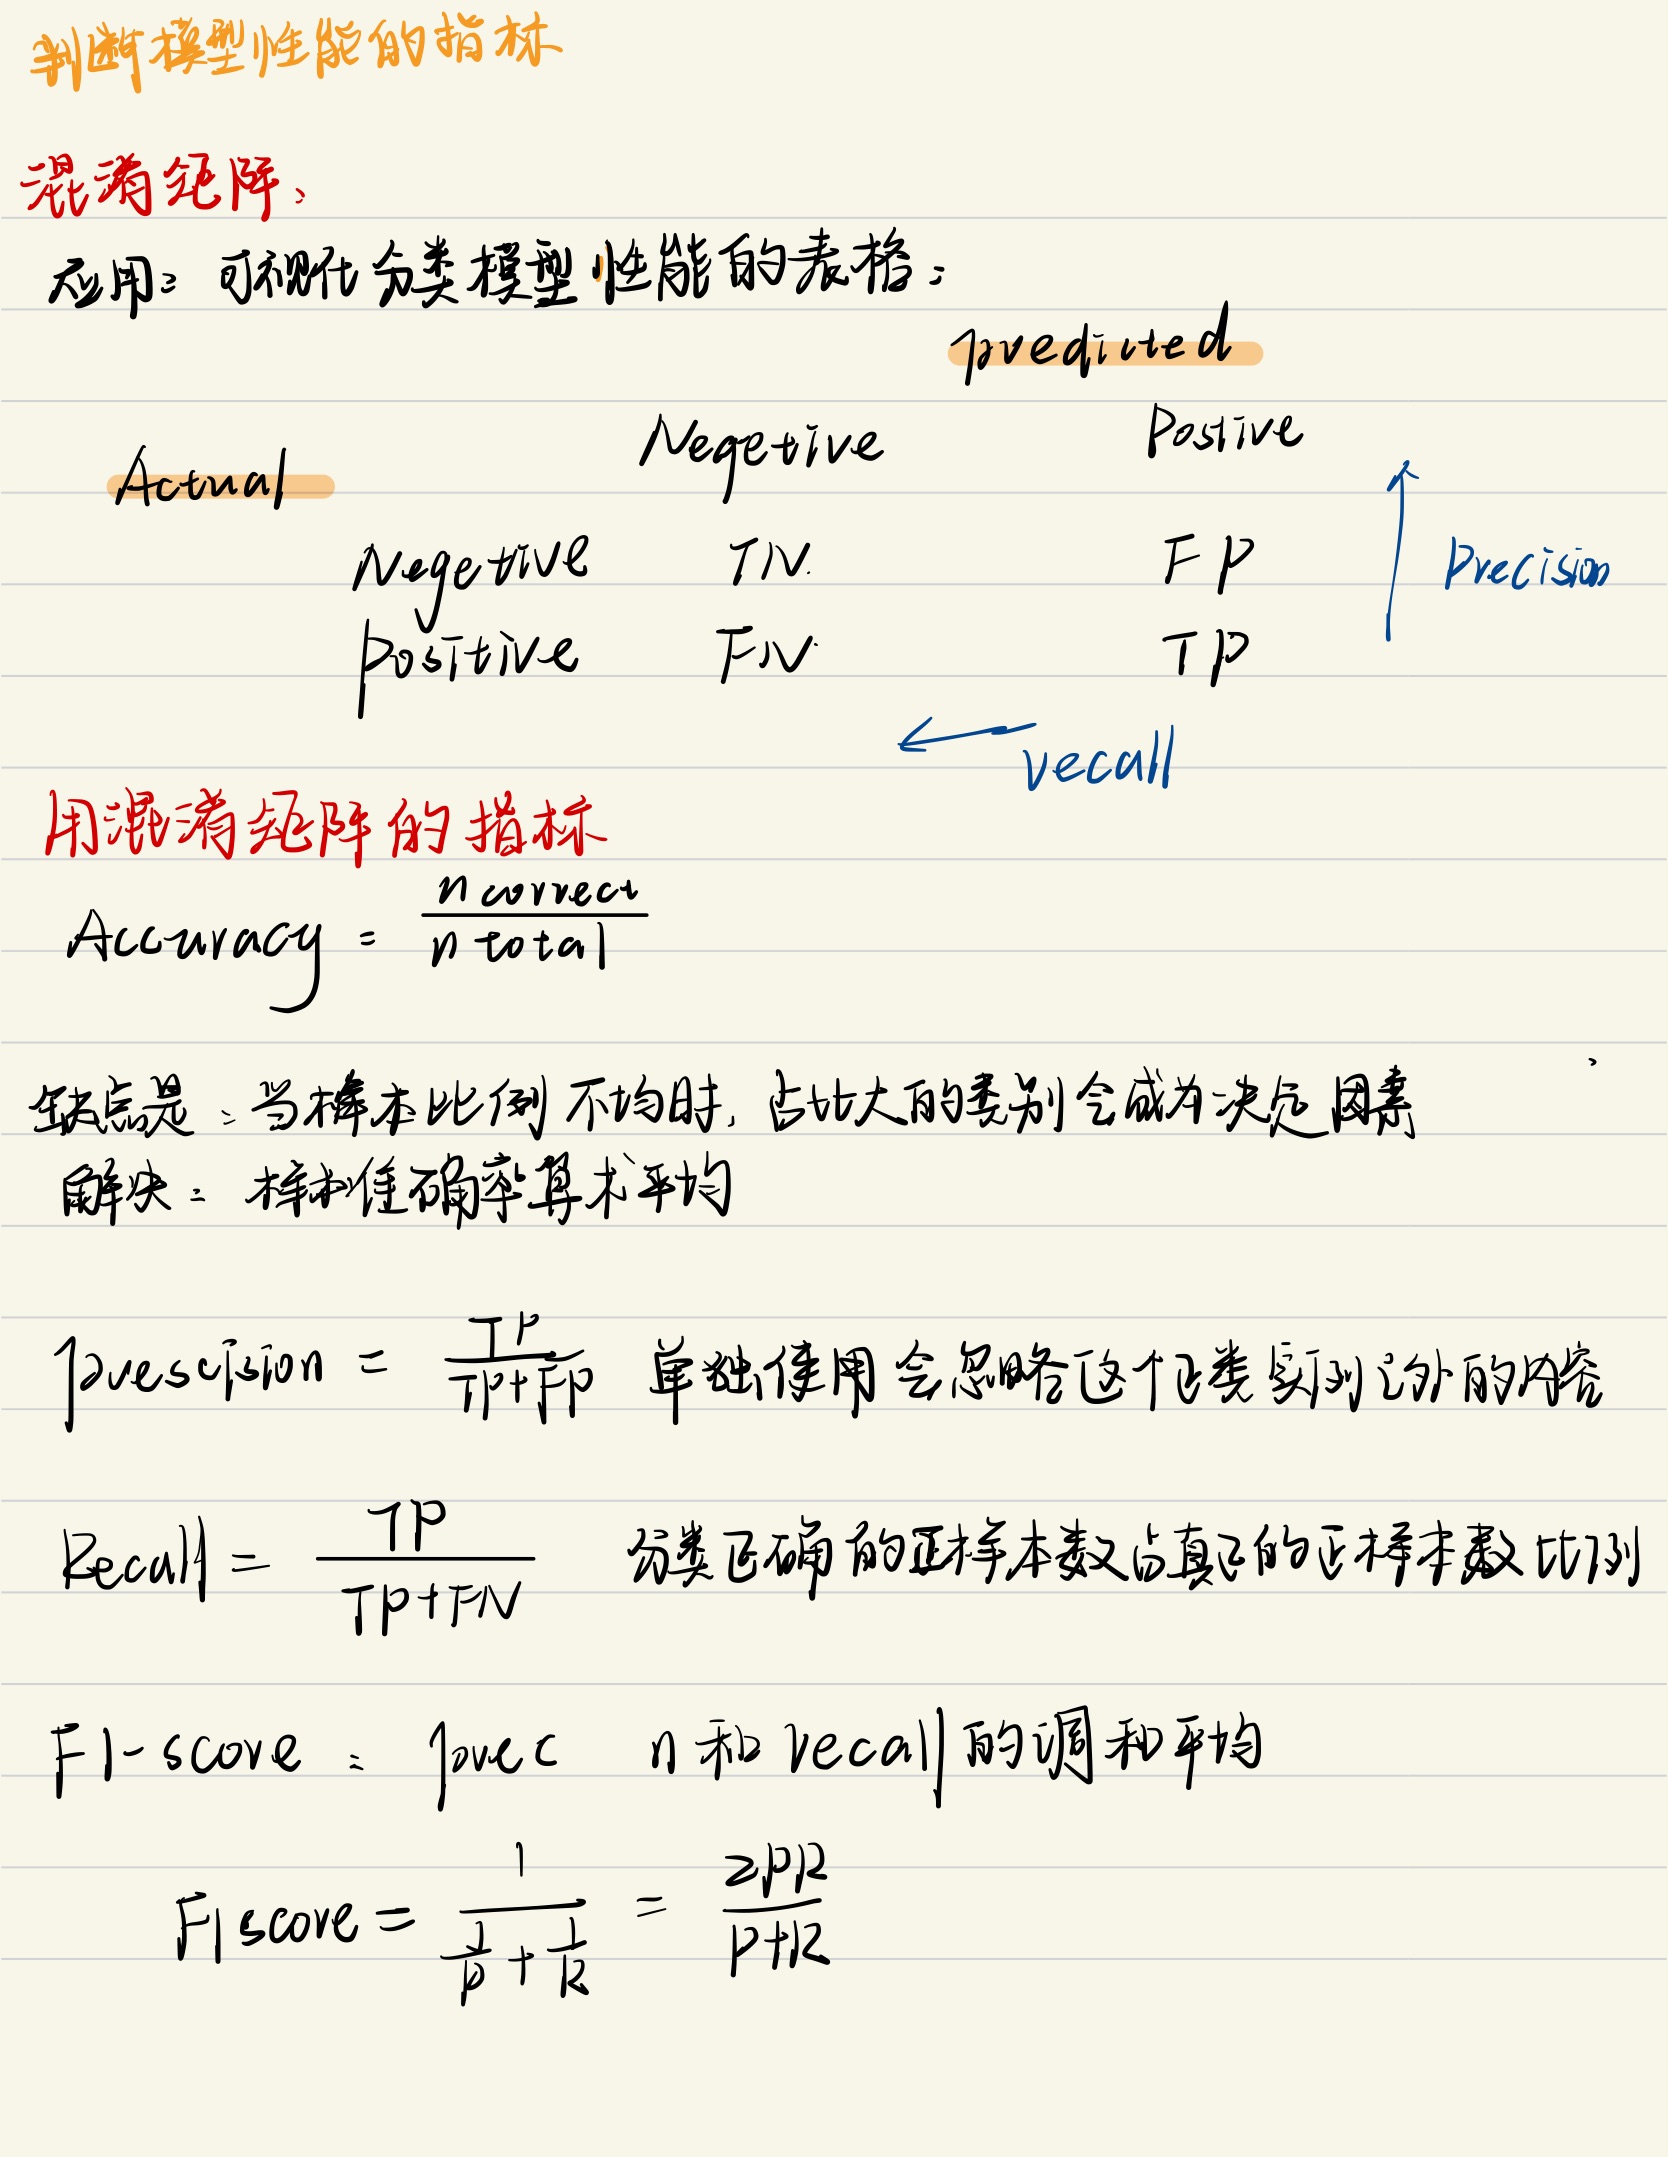 判断模型性能的指标
混淆矩阵、
应用：可视化分类模型性能的表格：
predicted
Negetive Postive
Actual
Negetive TN. FP
Precision
positive FN. TP
recall
用混淆矩阵的指标
Accuracy = n correct / n total
缺点是：当样本比例不均时，占比大的类别会成为决定因素
解决：样本准确率算术平均
prescision = TP / TP+FP 单独使用会忽略这个正类实例之外的内容
Recall = TP / TP+FN 分类正确的正样本数占真正的正样本数比例
F1-score : prec n和recall的调和平均
F1score = 1 / 1/p + 1/R = 2PR / P+R